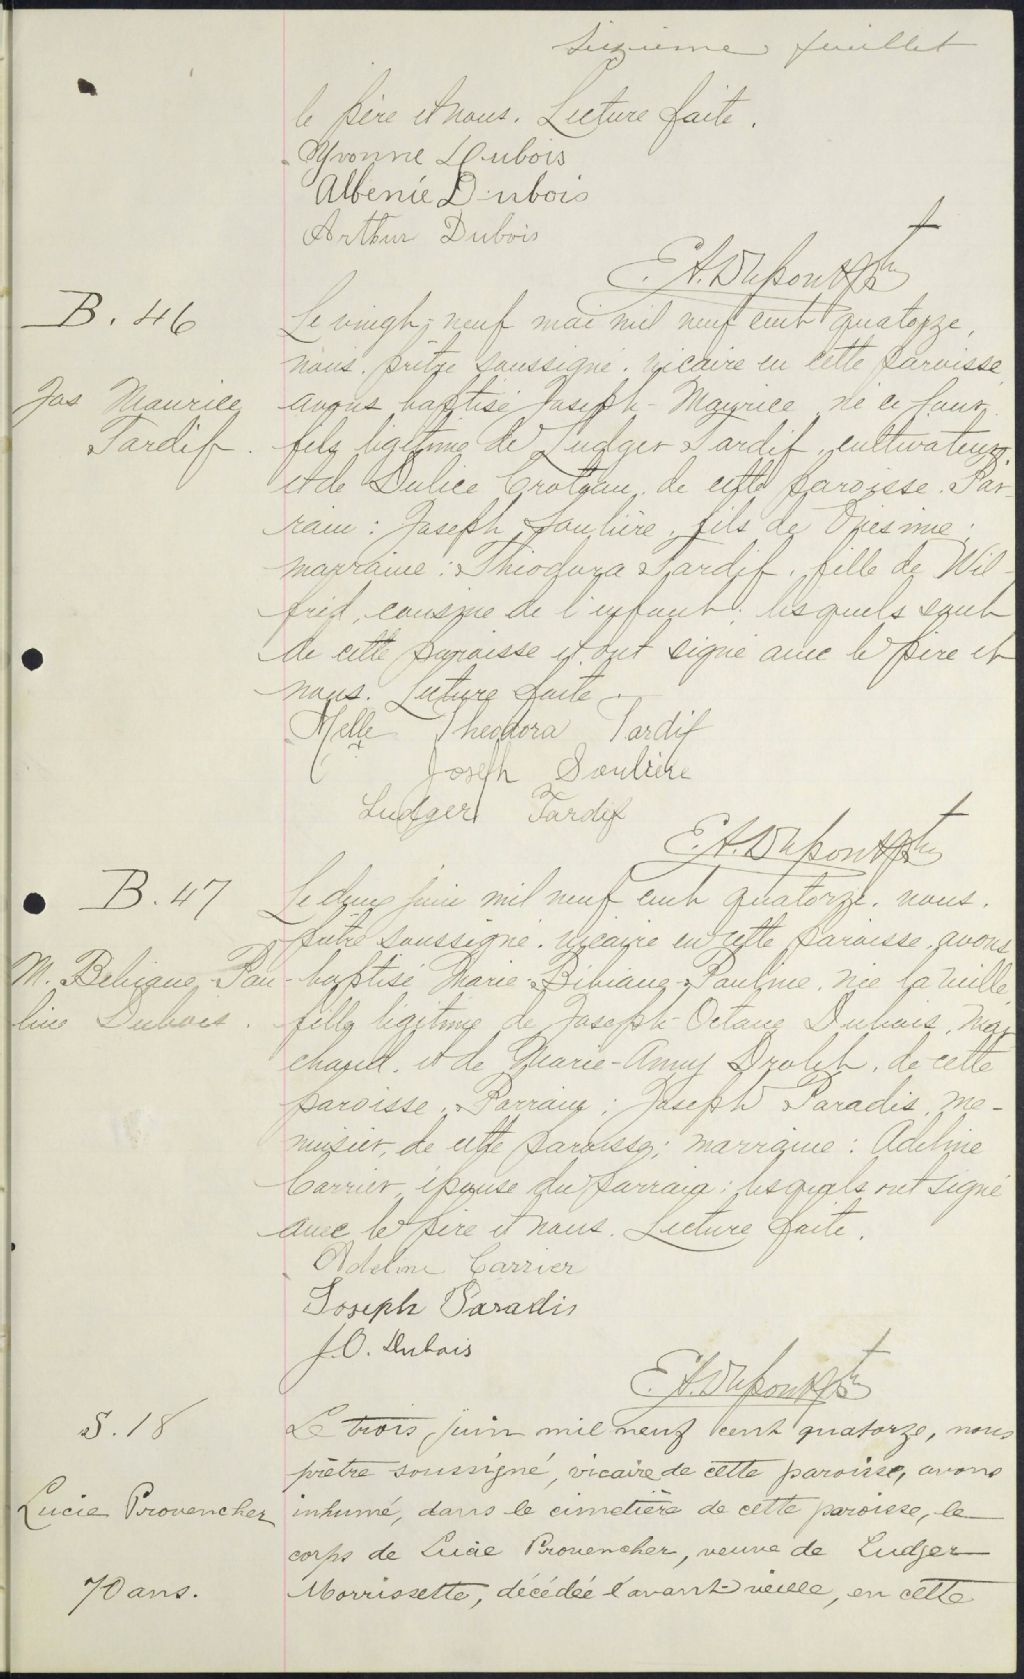 Sixième feuillet
le père et nous. Lecture faite.
Yvonne Dubois
Albenie Dubois
Arthur Dubois
E. A. Dupont Ptre
B. 46
Jos Maurice
Tardif.
Le vingt-neuf mai mil neuf cent quatorze,
nous, prêtre soussigné, vicaire en cette paroisse,
avons baptisé Joseph-Maurice né ce jour,
fils légitime de Ludger Tardif, cultivateur,
et de Dulice Croteau, de cette paroisse. Par-
rain: Joseph Soulière, fils de Onésime;
marraine: Théodora Tardif, fille de Wil-
frid, cousine de l'enfant; lesquels sont
de cette paroisse et ont signé avec le père et
nous. Lecture faite.
Melle Theodora Tardif
Joseph Soulière
Ludger Tardif
E. A. Dupont Ptre
B. 47
M. Bebiane Pau-
line Dubois.
Le deux juin mil neuf cent quatorze, nous,
prêtre soussigné, vicaire en cette paroisse, avons
baptisé Marie Bibiane-Pauline, née la veille,
fille légitime de Joseph-Octave Dubois, mar-
chand, et de Marie-Anny Drolet, de cette
paroisse. Parrain: Joseph Paradis, me-
nuisier, de cette paroisse; marraine: Adeline
Carrier, épouse du parrain; lesquels ont signé
avec le père et nous. Lecture faite.
Adeline Carrier
Joseph Paradis
J. O. Dubois
E. A. Dupont Ptre
S. 18
Lucie Provencher
70 ans.
Le trois juin mil neuf cent quatorze, nous
prêtre soussigné, vicaire de cette paroisse, avons
inhumé, dans le cimetière de cette paroisse, le
corps de Lucie Provencher, veuve de Ludger
Morrissette, décédée l'avant-veille, en cette